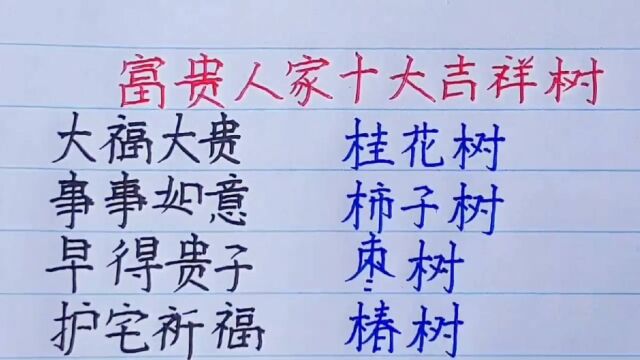 富贵人家十大吉祥树
大福大贵 桂花树
事事如意 柿子树
早得贵子 枣树
护宅祈福 椿树